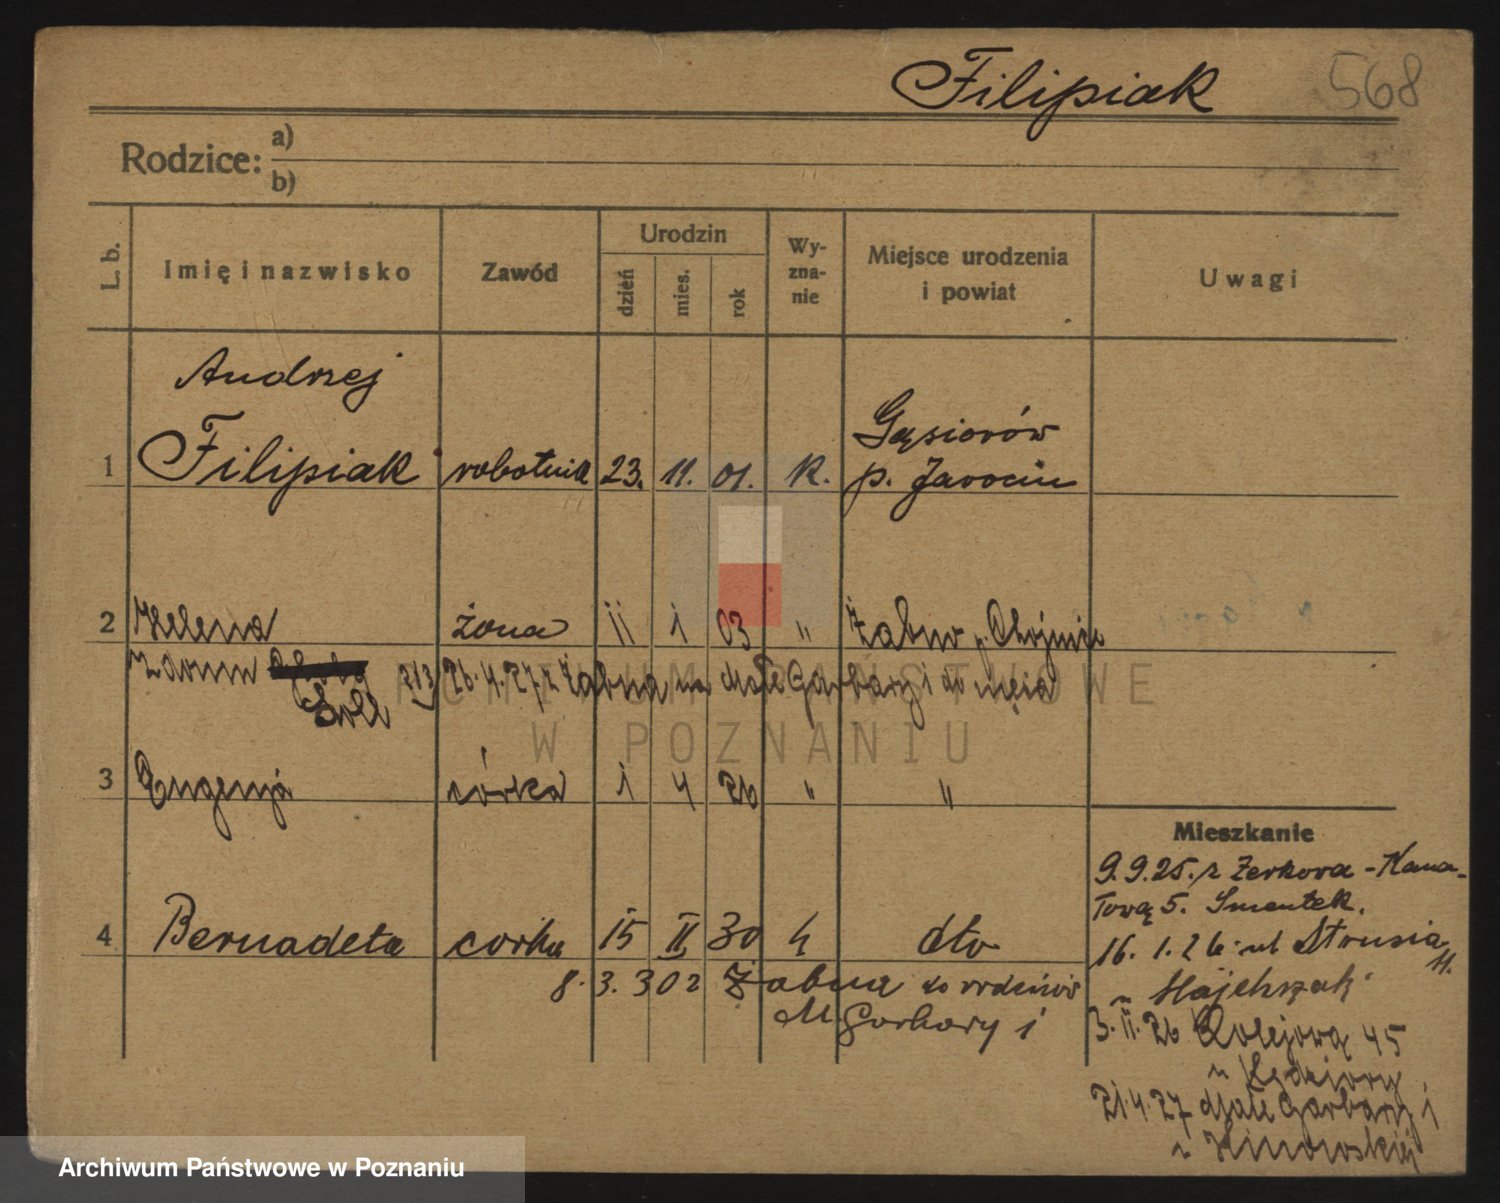 Filipiak 568
Rodzice: a)
b)
L. b. Imię i nazwisko Zawód Urodzin dzień mies. rok Wy-zna-nie Miejsce urodzenia i powiat Uwagi
Andrzej
1 Filipiak robotnik 23. 11. 01. K. Gąsiorów p. Jarocin
2 Helena żona 11 1 03 " Żabno p.
z domu
26.4.27 z Żabna na Małe Garbary 1 do męża
3 Eugenja córka 1 4 26 " "
4 Bernadeta corka 15 II 30 k dto
8.3.30 z Żabna do rodziców
M. Garbary 1
Mieszkanie
9.9.25. z Żerkowa - Kana-
łową 5. Smentek.
16. 1. 26. ul Strusia 11.
3. II. 26 Kolejową 45
u Kędziory
21.4.27 Małe Garbary 1
u
ARCHIWUM PAŃSTWOWE
W POZNANIU
Archiwum Państwowe w Poznaniu